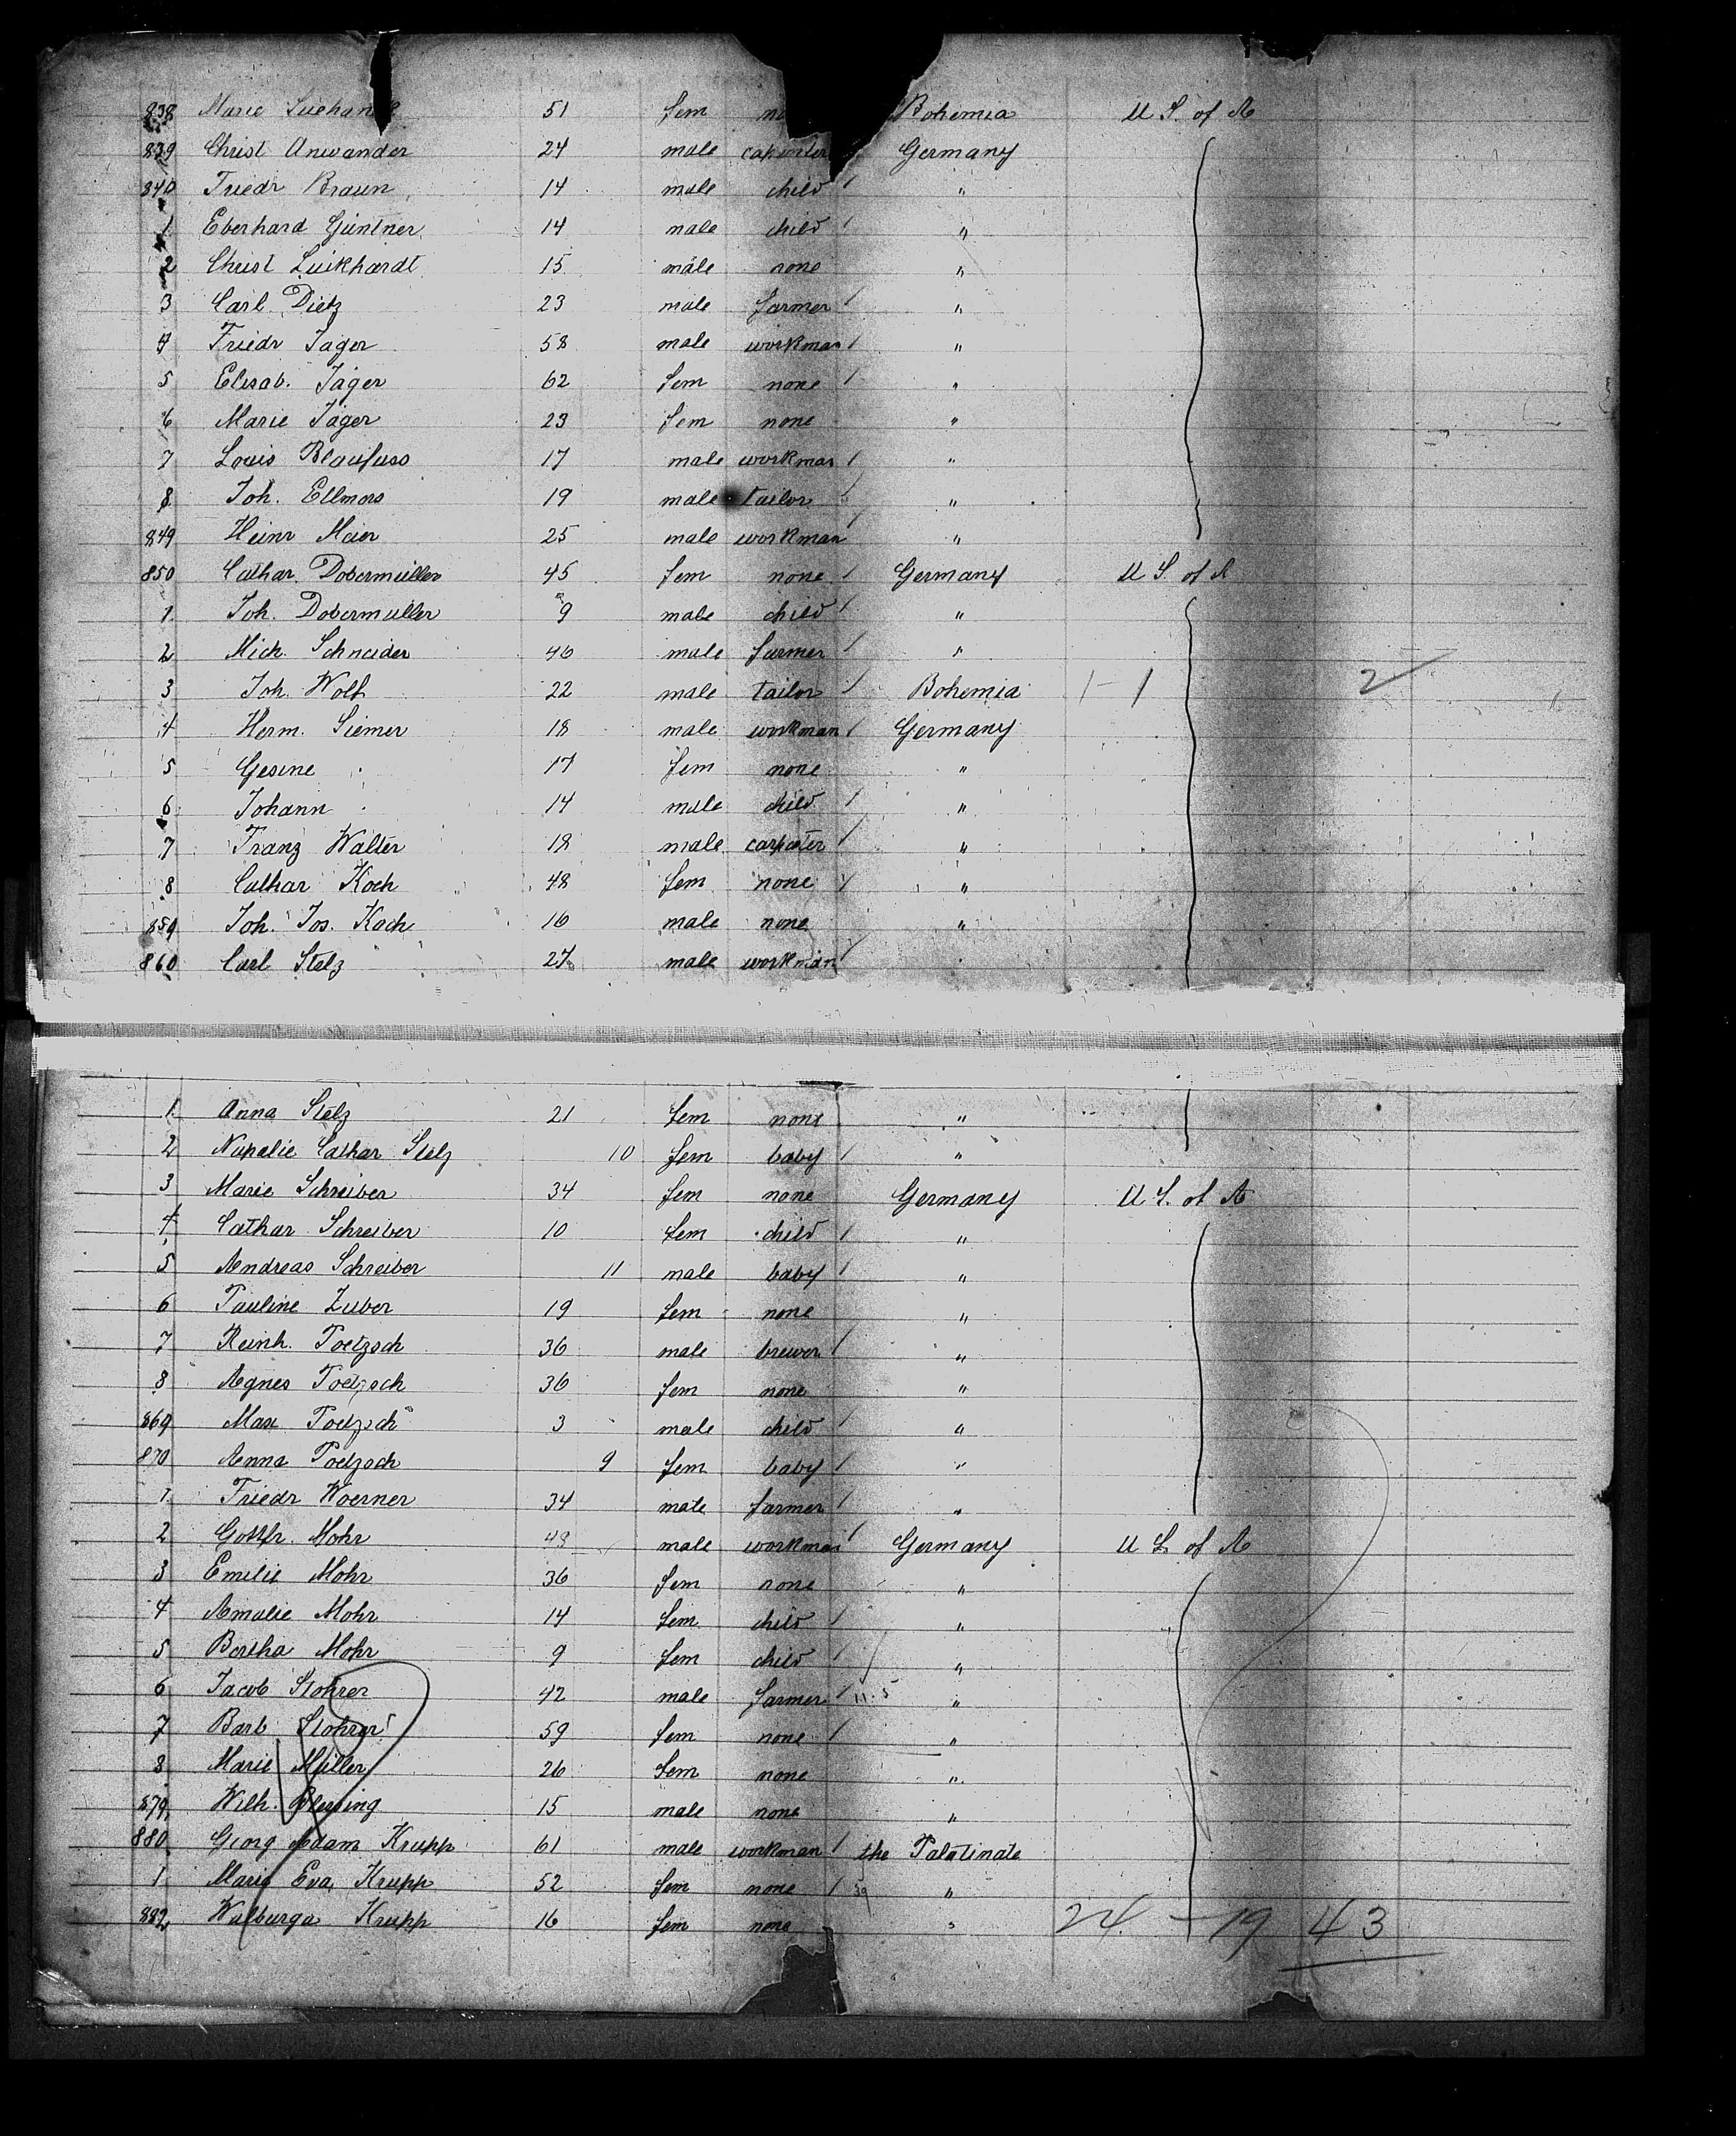 838 Marie 51 fem Bohemia U S. of A
839 Christ Anwander 24 male carpenter Germany
840 Friedr Braun 14 male child "
1 Eberhard Güntner 14 male child "
2 Christ Luikhardt 15 male none "
3 Carl Dietz 23 male farmer "
4 Friedr Jäger 58 male workman "
5 Elisab. Jäger 62 fem none "
6 Marie Jäger 23 fem none "
7 Louis Blaufuss 17 male workman "
8 Joh. Ellmers 19 male tailor "
849 Heinr Maier 25 male workman "
850 Cathar. Dobermüller 45 fem none Germany U S. of A
1 Joh. Dobermuller 9 male child "
2 Mich. Schneider 46 male farmer "
3 Joh. Wolf 22 male tailor Bohemia 1 - 1 2
4 Herm. Siemer 18 male workman Germany
5 Gesine 17 fem none "
6 Johann 14 male child "
7 Franz Walter 18 male carpater "
8 Cathar Koch 48 fem none "
859 Joh. Jos. Koch 16 male none "
860 Carl Stelz 27 male workman "
1 Anna Stelz 21 fem none "
2 Cathar Stelz 10 fem baby "
3 Marie Schreiber 34 fem none Germany U S. of A
4 Cathar Schreiber 10 fem child "
5 Andreas Schreiber 11 male baby "
6 Pauline Zuber 19 fem none "
7 Reinh. Poetzsch 36 male brewer "
8 Agnes Poetzsch 36 fem none "
869 Max Poetzsch 3 male child "
870 Anna Poetzsch 9 fem baby "
1 Friedr Woerner 34 male farmer "
2 Gottfr. Mohr 43 male workman Germany U S. of A
3 Emilie Mohr 36 fem none "
4 Amalie Mohr 14 fem child "
5 Bertha Mohr 9 fem child "
6 Jacob Stohrer 42 male farmer "
7 Barb Stohrer 59 fem none "
8 Marie Müller 26 fem none "
879 Wilh. Blessing 15 male none "
880 Georg Adam Krupp 61 male workman the Palatinate
1 Marie Eva Krupp 52 fem none "
882 Walburga Krupp 16 fem none " 24 - 19 43